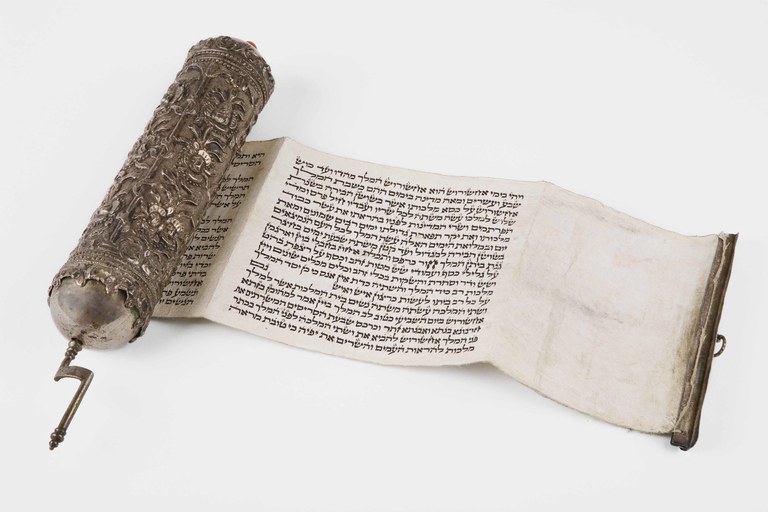 ויהי בימי אחשורוש הוא אחשורוש המלך מהדו ועד כוש
שבע ועשרים ומאה מדינה בימים ההם כשבת המלך
אחשורוש על כסא מלכותו אשר בשושן הבירה בשנת
שלוש למלכו עשה משתה לכל שריו ועבדיו חיל פרס ומדי
הפרתמים ושרי המדינות לפניו בהראתו את עשר כבוד
מלכותו ואת יקר תפארת גדולתו ימים רבים שמונים ומאת
יום ובמלואת הימים האלה עשה המלך לכל העם הנמצאים
בשושן הבירה למגדול ועד קטן משתה שבעת ימים בחצר
גנת ביתן המלך חור כרפס ותכלת אחוז בחבלי בוץ וארגמן
על גלילי כסף ועמודי שש מטות זהב וכסף על רצפת בהט
ושש ודר וסחרת והשקות בכלי זהב וכלים מכלים שונים ויין
מלכות רב כיד המלך והשתיה כדת אין אנס כי כן יסד המלך
על כל רב ביתו לעשות כרצון איש ואיש גם
ושתי המלכה עשתה משתה נשים בית המלכות אשר למלך
אחשורוש ביום השביעי כטוב לב המלך ביין אמר למהומן בזתא
חרבונא בגתא ואבגתא זתר וכרכס שבעת הסריסים המשרתים את
פני המלך אחשורוש להביא את ושתי המלכה לפני המלך בכתר
מלכות להראות העמים והשרים את יפיה כי טובת מראה